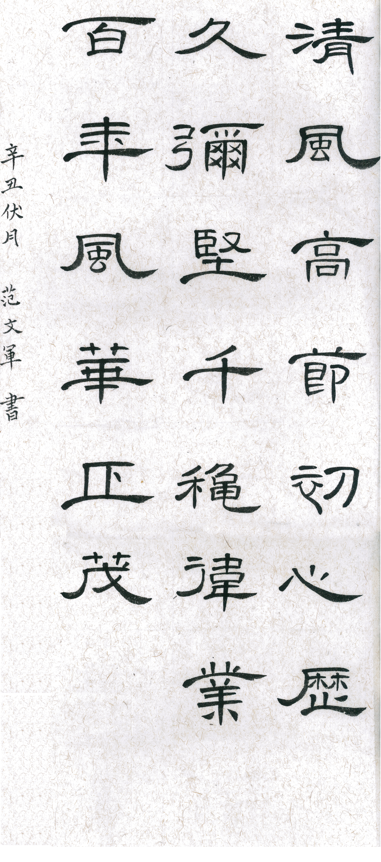 清風高節初心歷
久彌堅千龝偉業
百年風華正茂
辛丑伏月 范文軍 書